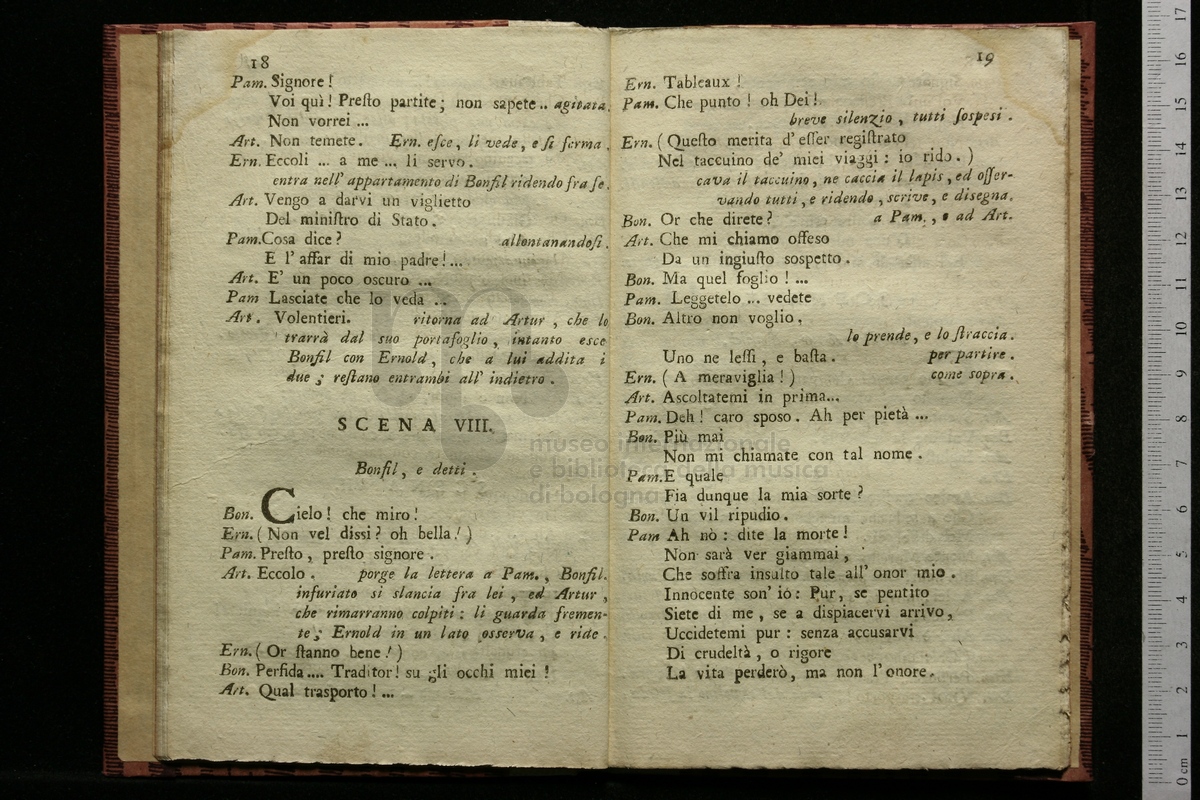 18
Pam. Signore!
Voi quì! Presto partite; non sapete .. agitata.
Non vorrei ...
Art. Non temete. Ern. esce, li vede, e si ferma.
Ern. Eccoli ... a me ... li servo.
entra nell' appartamento di Bonfil ridendo fra se.
Art. Vengo a darvi un viglietto
Del ministro di Stato.
Pam. Cosa dice? allontanandosi.
E l' affar di mio padre!...
Art. E' un poco oscuro ...
Pam Lasciate che lo veda ...
Art. Volentieri. ritorna ad Artur, che lo
trarrà dal suo portafoglio, intanto esce
Bonfil con Ernold, che a lui addita i
due; restano entrambi all' indietro.
SCENA VIII.
Bonfil, e detti.
Bon. Cielo! che miro!
Ern. (Non vel dissi? oh bella!)
Pam. Presto, presto signore.
Art. Eccolo. porge la lettera a Pam., Bonfil.
infuriato si slancia fra lei, ed Artur,
che rimarranno colpiti: li guarda fremen-
te; Ernold in un lato osserva, e ride.
Ern. (Or stanno bene!)
Bon. Perfida.... Traditor! su gli occhi miei!
Art. Qual trasporto! ...
19
Ern. Tableaux!
Pam. Che punto! oh Dei!
breve silenzio, tutti sospesi.
Ern. (Questo merita d' esser registrato
Nel taccuino de' miei viaggi: io rido.)
cava il taccuino, ne caccia il lapis, ed osser-
vando tutti, e ridendo, scrive, e disegna.
Bon. Or che direte? a Pam., e ad Art.
Art. Che mi chiamo offeso
Da un ingiusto sospetto.
Bon. Ma quel foglio! ...
Pam. Leggetelo ... vedete
Bon. Altro non voglio.
lo prende, e lo straccia.
Uno ne lessi, e basta. per partire.
Ern. (A meraviglia!) come sopra.
Art. Ascoltatemi in prima...
Pam. Deh! caro sposo. Ah per pietà ...
Bon. Più mai
Non mi chiamate con tal nome.
Pam. E quale
Fia dunque la mia sorte?
Bon. Un vil ripudio.
Pam Ah nò: dite la morte!
Non sarà ver giammai,
Che soffra insulto tale all' onor mio.
Innocente son' io: Pur, se pentito
Siete di me, se a dispiacervi arrivo,
Uccidetemi pur: senza accusarvi
Di crudeltà, o rigore
La vita perderò, ma non l' onore.
museo internazionale
e biblioteca della musica
di bologna
0 cm 1 2 3 4 5 6 7 8 9 10 11 12 13 14 15 16 17